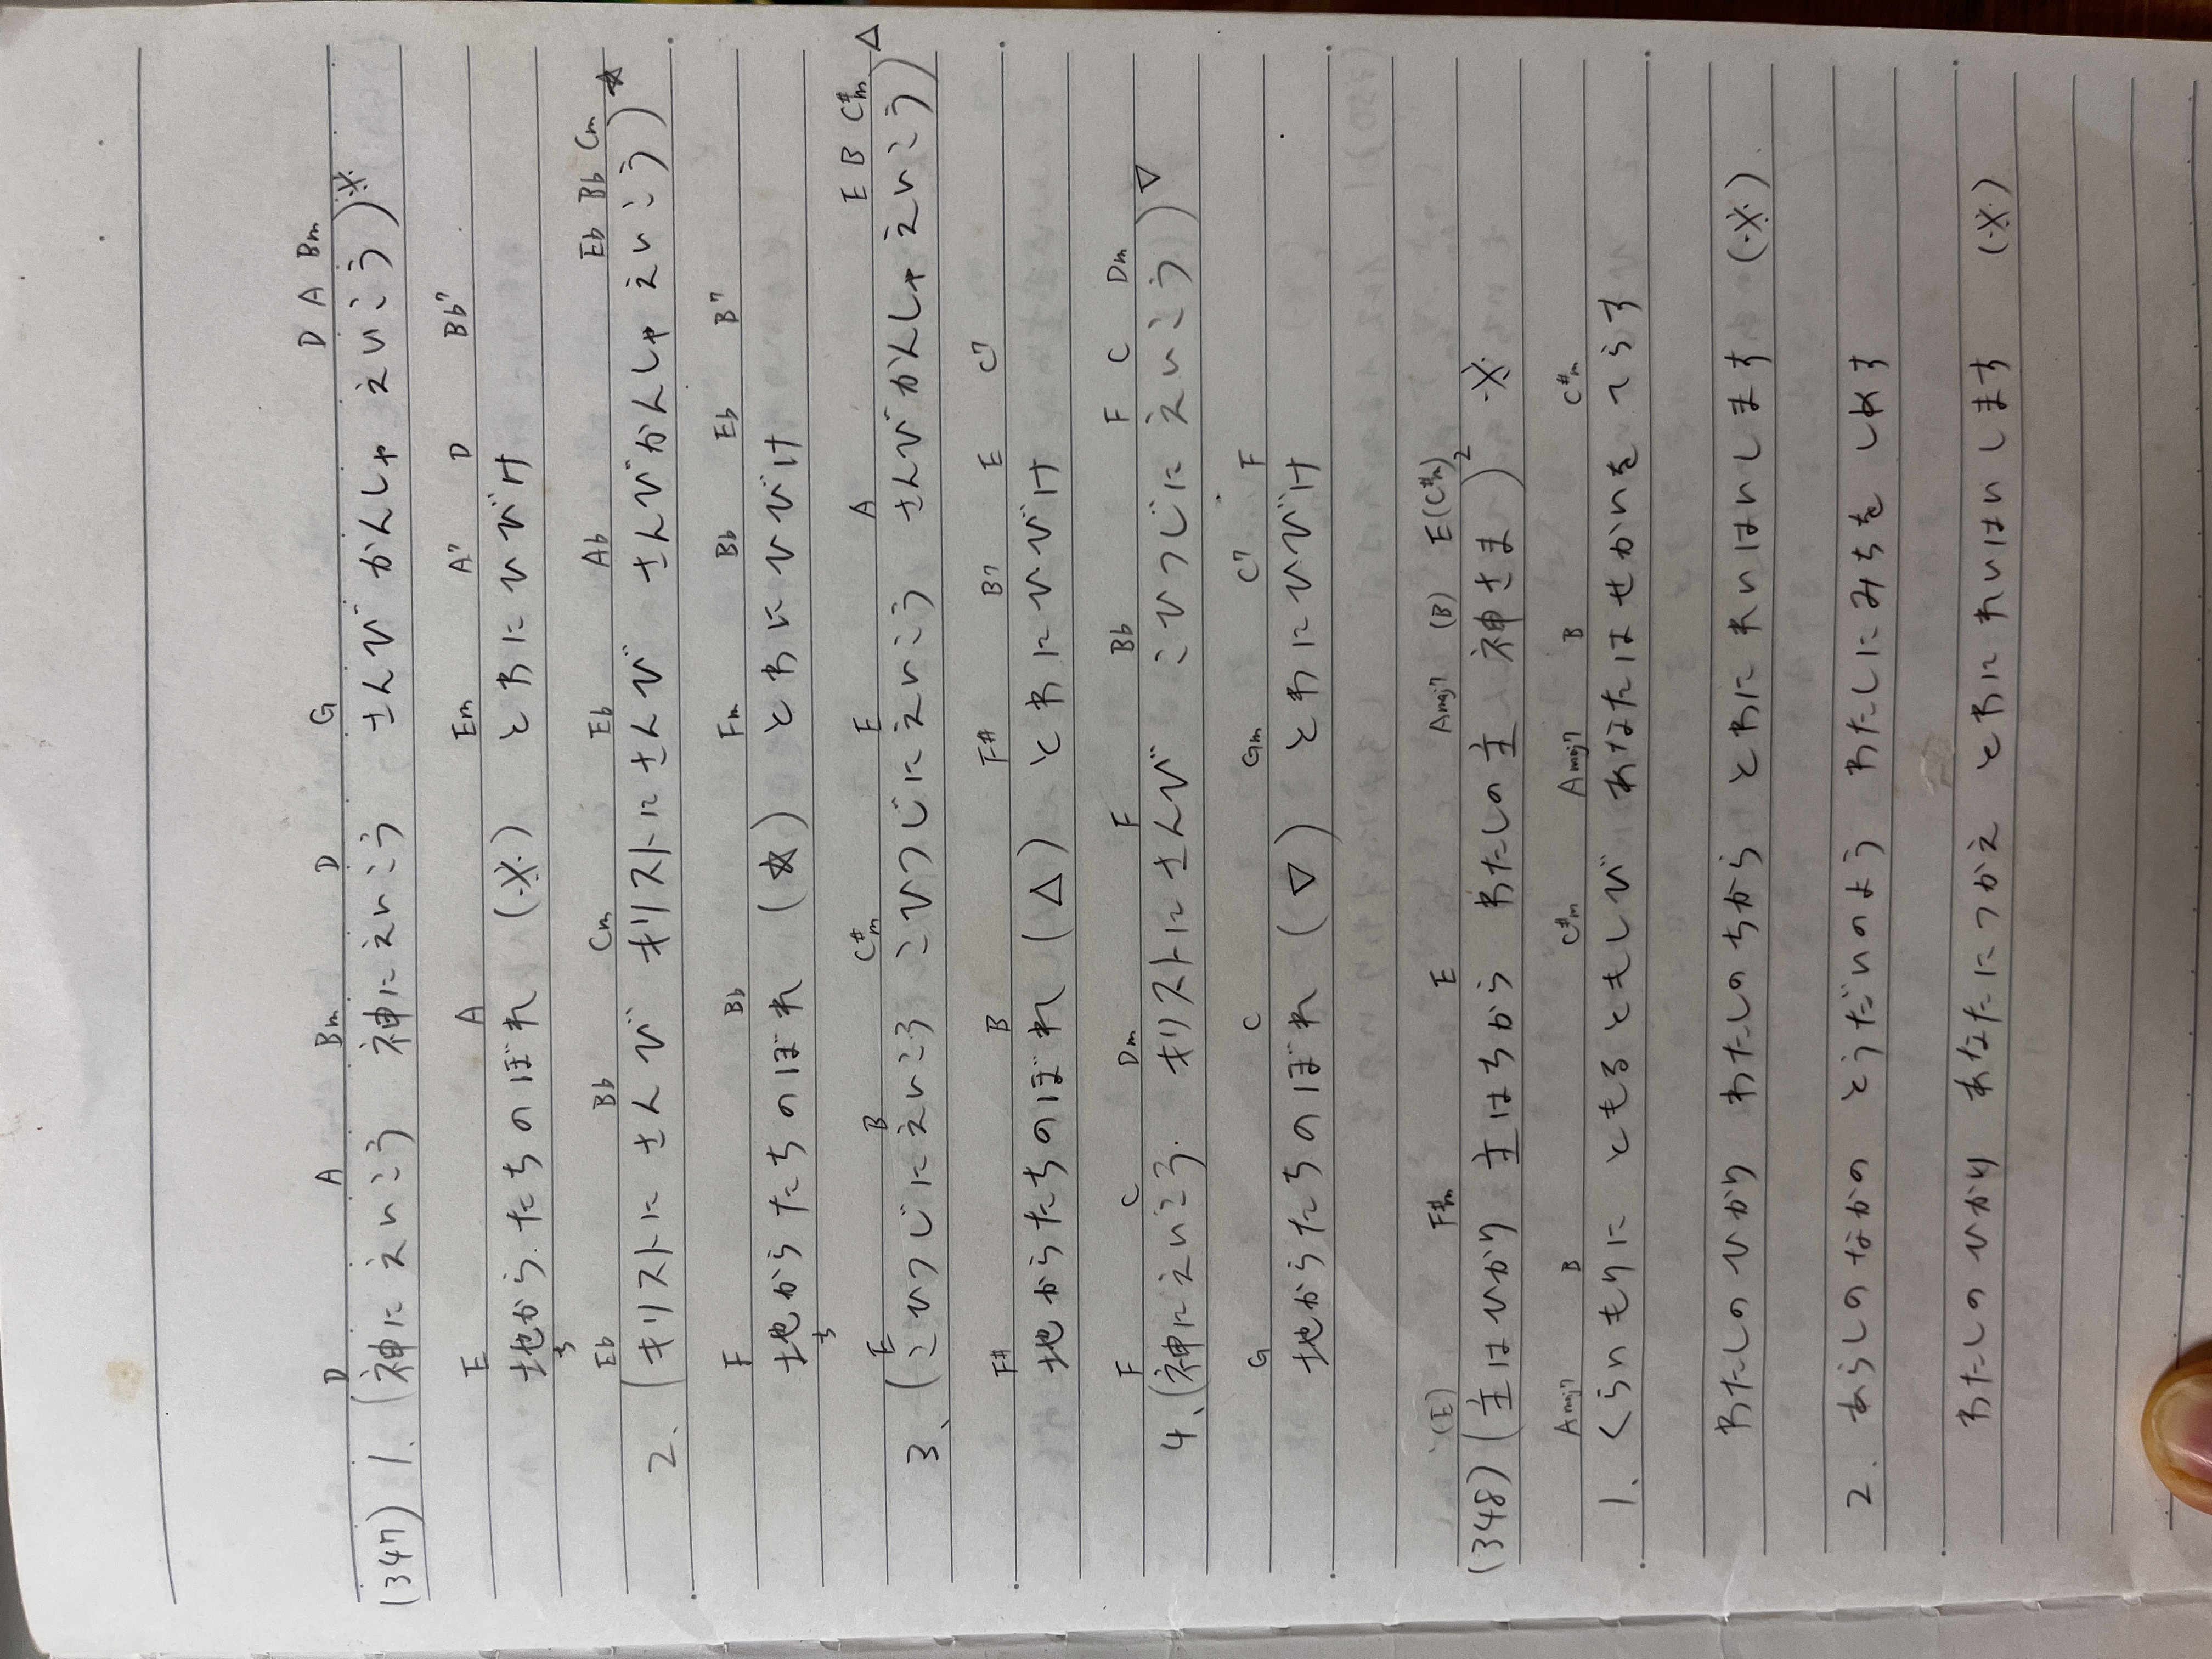 D A Bm D G D A Bm
(347) 1. (神に えいこう 神にえいこう さんび かんしゃ えいこう)※
E A Em A7 D Bb7
地から たちのぼれ (※) とわにひびけ
ち
Eb Bb Cm Eb Ab Eb Bb Cm
2. (キリストに さんび キリストにさんび さんびかんしゃ えいこう)☆
F Bb Fm Bb Eb B7
地から たちのぼれ (☆) とわにひびけ
ち
E B C#m E A E B C#m
3. (こひつじにえいこう こひつじにえいこう さんびかんしゃ えいこう)△
F# B F# B7 E C7
地からたちのぼれ (△) とわにひびけ
F C Dm F Bb F C Dm
4. (神にえいこう. キリストにさんび こひつじに えいこう)▽
G C Gm C7 F
地からたちのぼれ (▽) とわにひびけ
(E) F#m E Amaj7 (B) E(C#m)
(348) (主はひかり 主はちから わたしの主 神さま)2 ※
Amaj7 B C#m Amaj7 B C#m
1. くらいもりに ともるともしび あなたはせかいを てらす
わたしのひかり わたしのちから とわにれいはいします (※)
2. あらしのなかの とうだいのよう わたしにみちを しめす
わたしのひかり あなたにつかえ とわにれいはいします (※)